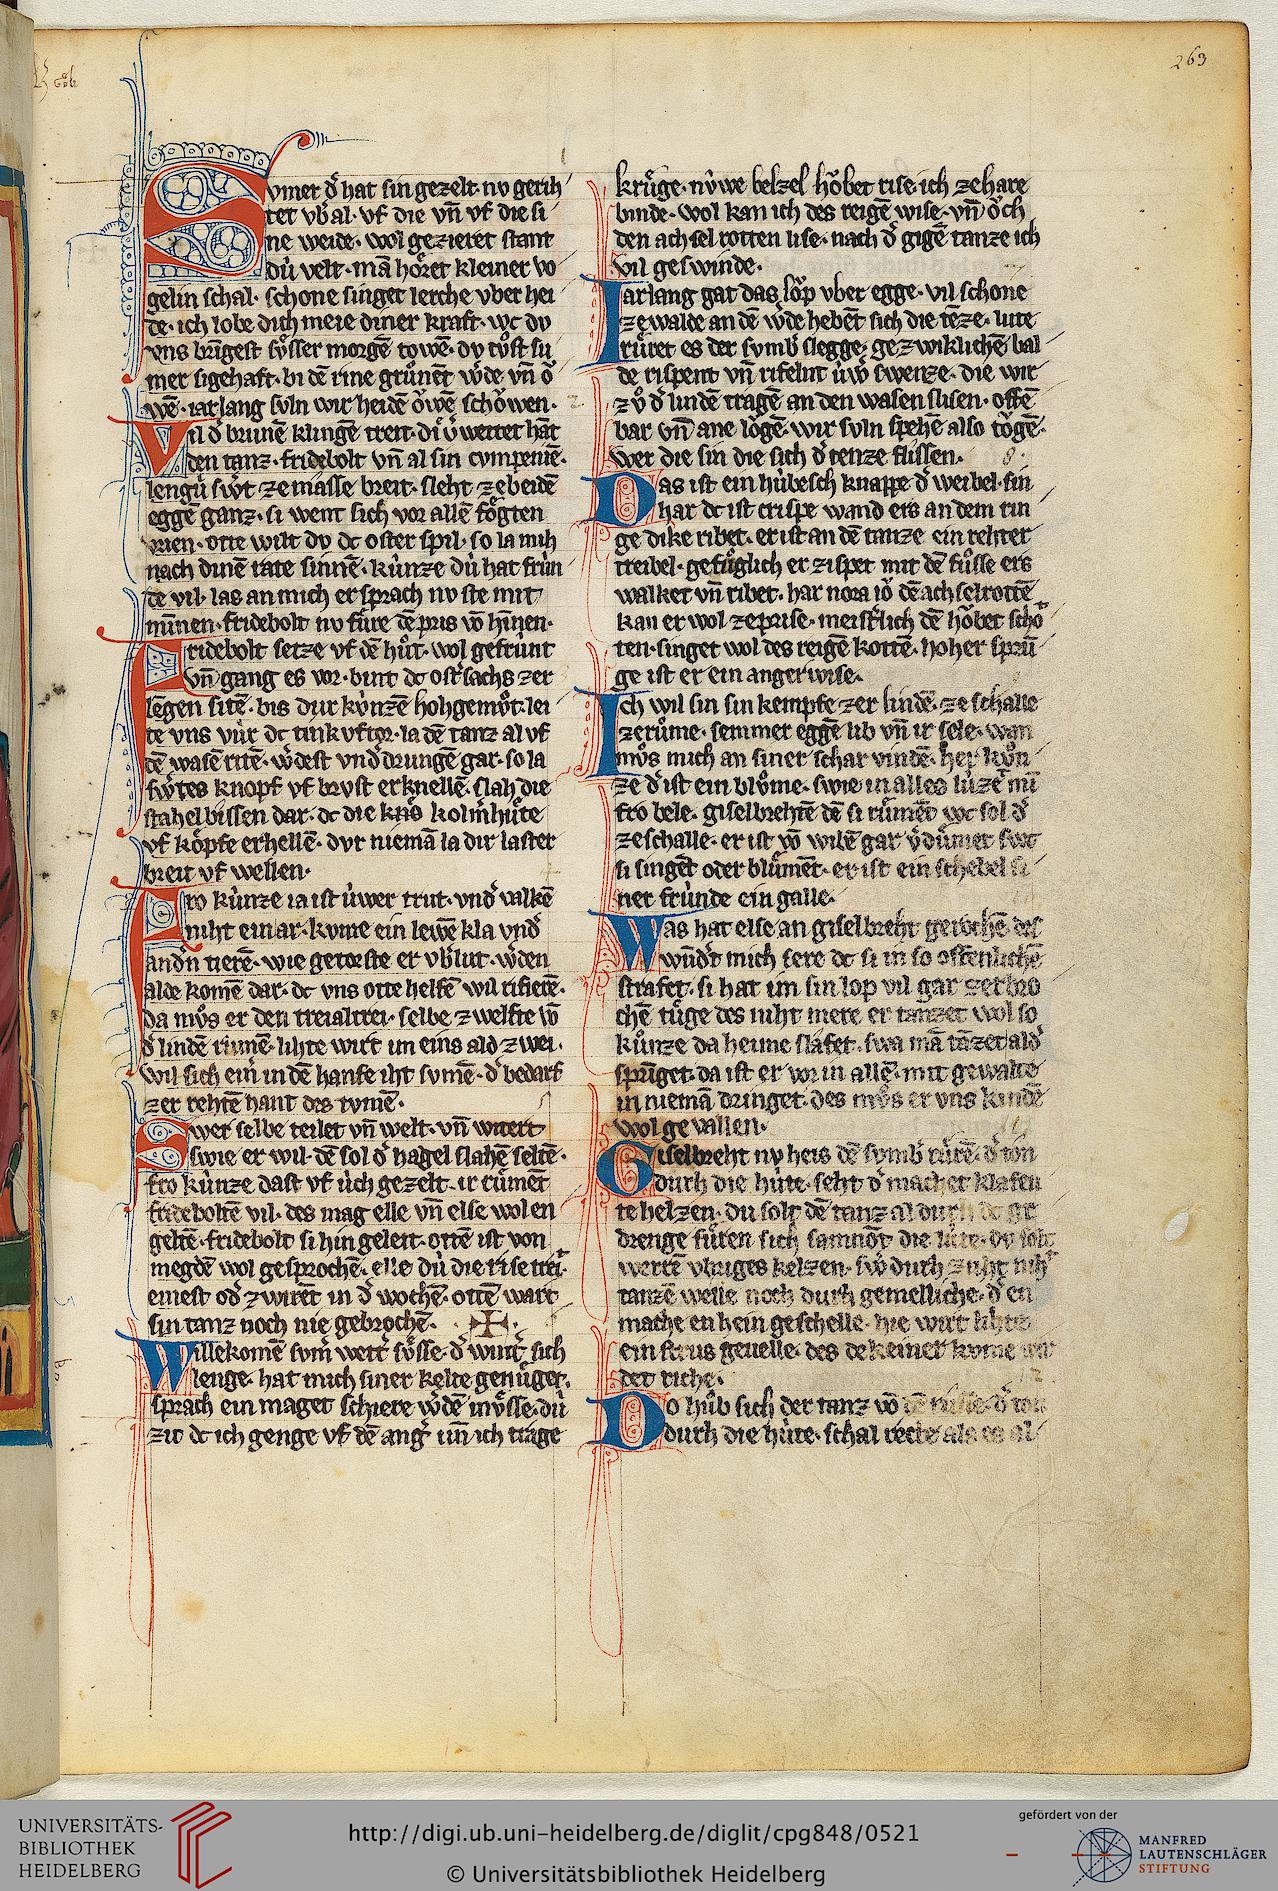 263
Svmer d̄ hat sin gezelt· nv gerih
tet vb̄al· vf die vn̄ vf die si
ne weide· wol gezieret stant
dv̍ velt· mā hoͤret kleiner vo
gelin schal· schone singet lerche vber hei
de· ich lobe dich meie diner kraft· wc dv
vns bringest sv̊sser morgē towē· dv tv̊st su
mer sigehaft· bi dē rine grv̊nēt w̄de vn̄ o͗
wē· iarlang svln wir heidē o͗wē scho͗wen·
Vil d̄ brunē klingē trett· di v̊ wertet hāt
den tanz· fridebolt vn̄ al sin cvmpenie·
lengv̍ sw̄t ze masse breit· sleht ze beidē
egge ganz· si went sich vor allē fo͗gten
vrien· otte wilt dv dc oster spil· so la mih
nach dinē rate sinnē· kv̍nze dv̍ hat frv̍n
de vil· las an mich er sprach nv ste mit
minnen· fridebolt nv fv̍re dē pris vō hinnen·
Fridebolt setze vf dē hv̊t· wol gefrv̍nt
vn̄ gang es vor· bint dc ost̄sachs zer
lēgen sitē· bis dur kv̍nzē hohgemv̊t· lei
te vns vv̍r dc tinkvftor· la dē tanz al vf
dē wasē ritē· w̄dest vnd̄drungē gar· so la
sw̄tes knopf vf brvst erknellē· slah die
stahelbissen dar· dc die kns̄ kolm̄hv̍te
vf ko͗pfe erhellē· dvr niemā la dir laster
breit vf wellen·
Fro kv̍nze ia ist v̍wer trut· vnd̄ valkē
niht ein ar· kvme ein lewē kla vnd̄
andn̄ tierē· wie getorste er vb̄lut· w̄den
alde komē dar· dc vns otte helfē wil rifierē·
da mv̊s er den treialtrei· selbe zwelfte vō
d̄ lindē rvmē· lihte wirt im eins ald zwei·
wil sich em̄ in dē hanfe iht svmē· d̄ bedarf
zer rehtē hant des rvmē·
Swer selbe teilet vn̄ welt· vn̄ witert
swie er wil· dē sol d̄ hagel slahē seltē·
fro kv̍nze dast vf v̍ch gezelt· ir rv̊mēt
frideboltē vil· des mag elle vn̄ else wol en
geltē· fridebolt si hin geleit· ottē ist von
megdē wol gesprochē· elle dv̍ die rise trei·
einest od̄ zwirēt in d̄ wochē· ottē wart
sin tanz noch nie gebrochē·
Willekomē svm̄ wett̄ sv̊sse· d̄ wint̄ sich
lenge· hat mich siner kelte genv̊get·
sprach ein maget schiere w̄dē mv̊sse· dv̍
zit dc ich genge vf dē anḡ vn̄ ich trage
krv̊ge· nv̍we belzel ho͗bet rise ich ze hare
binde· wol kan ich des reigē wise· vn̄ o͗ch
den achsel rotten lise· nach d̄ gigē tanze ich
vil geswinde·
Iarlang gat das lo͗p vber egge· vil schone
ze walde an dē w̄de hebēt sich die tēze· lute
rv̊ret es der svmb̄ slegge· gezwiklichē bal
de rispent vn̄ rifelnt v̍w̄ swenze· die wir
zv̊ d̄ lindē tragē an den wasen slisen· offē
bar vn̄ ane lo͗gē· wir svln spehē also to͗gē·
wer die sin die sich d̄ tenze flissen·
Das ist ein hv̍besch knappe d̄ weibel· sin
har dc ist crispe wand ers an dem rin
ge dike ribet· er ist an dē tanze ein rehter
treibel· gefv̊glich er zispet mit dē fv̊sse ers
walket vn̄ ribet· har nora io͗ dē achselrottē
kan er wol ze prise· meist̄lich dē ho͗bet scho
ten· singet wol des reigē kottē· hoher sprv̄
ge ist er ein angerwise·
Ich wil sin sin kempfe zer lindē· ze schalle
ze rv̊me· semmer eggē lib vn̄ ir sele· wan
mv̊s mich an siner schar vindē· her kv̊n
ze d̄ ist ein blv̊me· swie in alles
fro bele· giselbrehtē dē si rv̊mēt wc sol d̄
ze schalle· er ist vō wilē gar v̄dv̊met swc
si singēt oder blv̊mēt· er ist ein schebel si
ner frv̍nde ein galle·
Was hat else an giselbreht gerochē· des
wūd̄t mich sere dc si in so offenlichē
strafet· si hat im sin lop vil gar zerbro
chē· tv̊ge des niht mere er tanzet wol so
kv̊nze da heime slafet· swa mā tāzet ald̄
springet· da ist er vor in allē· mit gewalte
in niemā dringet· des mv̊s er vns kindē
wol gevallen·
Giselbreht nv heis dē svmb̄ rv̊rē· d̄ tōn
durch die hv̍te· seht d̄ machet klafen
te helzen· du solt dē tanz al durh dc ge
drenge fv̊ren sich samnōt die lv̍te· dv solt
wertē vbriges kelzen· sw̄ durh zuht nih
tanzē welle noch durh gemelliche· d̄ en
mache enkein geschelle· hie wirt lihte
ein strus gevelle· des dekeiner kvme
der riche·
Do hv̊b sich der tanz vō d̄ ton
durch die hv̍te· schal rehte als es al
UNIVERSITÄTS-
BIBLIOTHEK
HEIDELBERG
http://digi.ub.uni-heidelberg.de/diglit/cpg848/0521
© Universitätsbibliothek Heidelberg
gefördert von der
MANFRED
LAUTENSCHLÄGER
STIFTUNG